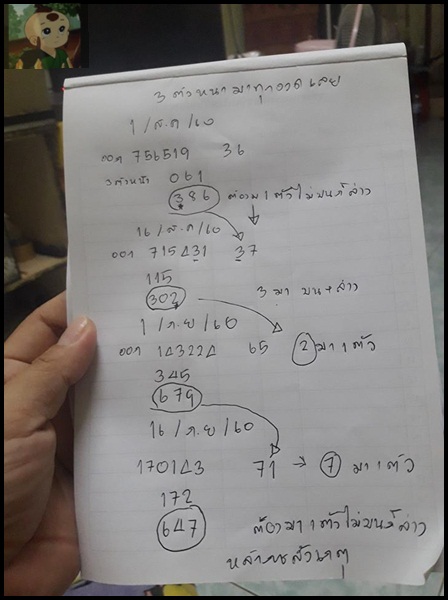 3 ตัวหน้า มาทุกงวด เลย
1 / ส.ค / 60
ออก 756519 36
3 ตัวหน้า 061
386 ต้องมา 1 ตัวไม่บนก็ล่าง
16 / ส.ค / 60
ออก 715431 37
115
302 3 มา บน+ล่าง
1 / ก.ย / 60
ออก 143224 65 2 มา 1 ตัว
345
679
16 / ก.ย / 60
170143 71 → 7 มา 1 ตัว
172
647 ต้องมา 1 ตัวไม่บนก็ล่าง
หลักการสังเกตุ